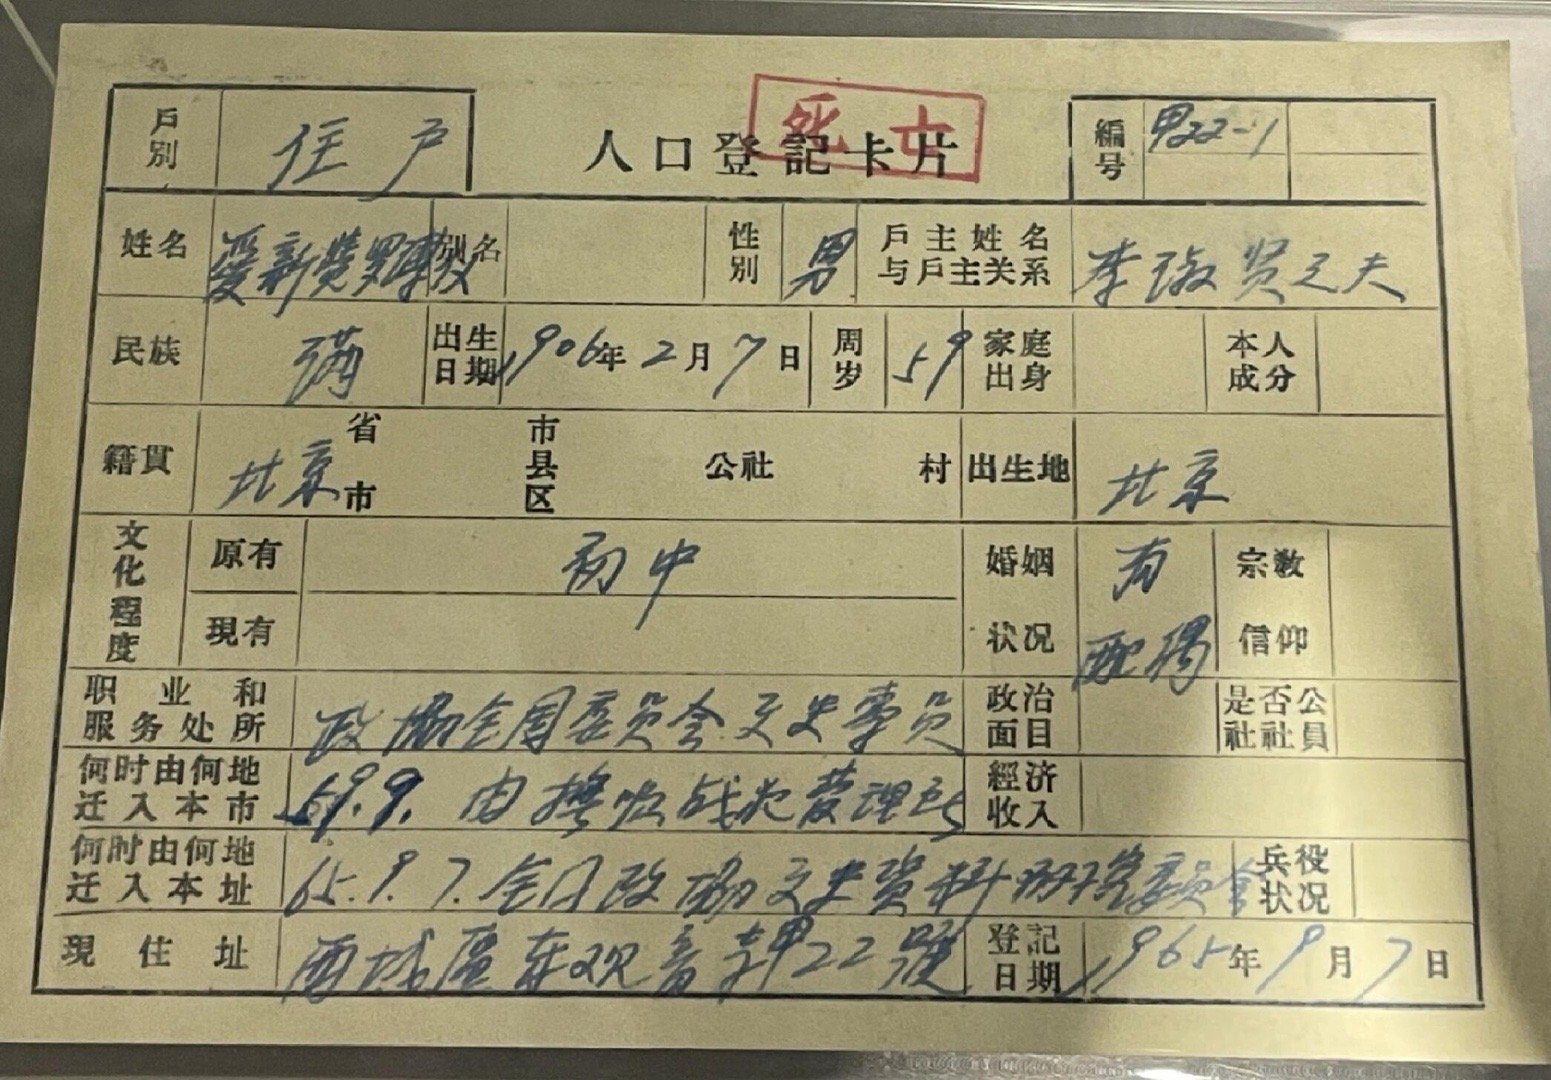 死亡
戶別 住户 人口登記卡片 編号 甲22-1
姓名 愛新觉罗溥仪 别名 性别 男 戶主姓名与戶主关系 李淑贤之夫
民族 满 出生日期 1906年2月7日 周岁 59 家庭出身 本人成分
籍貫 北京 省市 市县区 公社 村 出生地 北京
文化程度 原有 初中 婚姻状况 有配偶 宗教信仰
現有
职业和服务处所 政协全国委员会文史专員 政治面目 是否公社社員
何时由何地迁入本市 59.9. 由撫順战犯管理所 經济收入
何时由何地迁入本址 65.9.7. 全国政协文史資料研究委員会 兵役状况
現住址 西城區东观音寺甲22號 登記日期 1965年9月7日